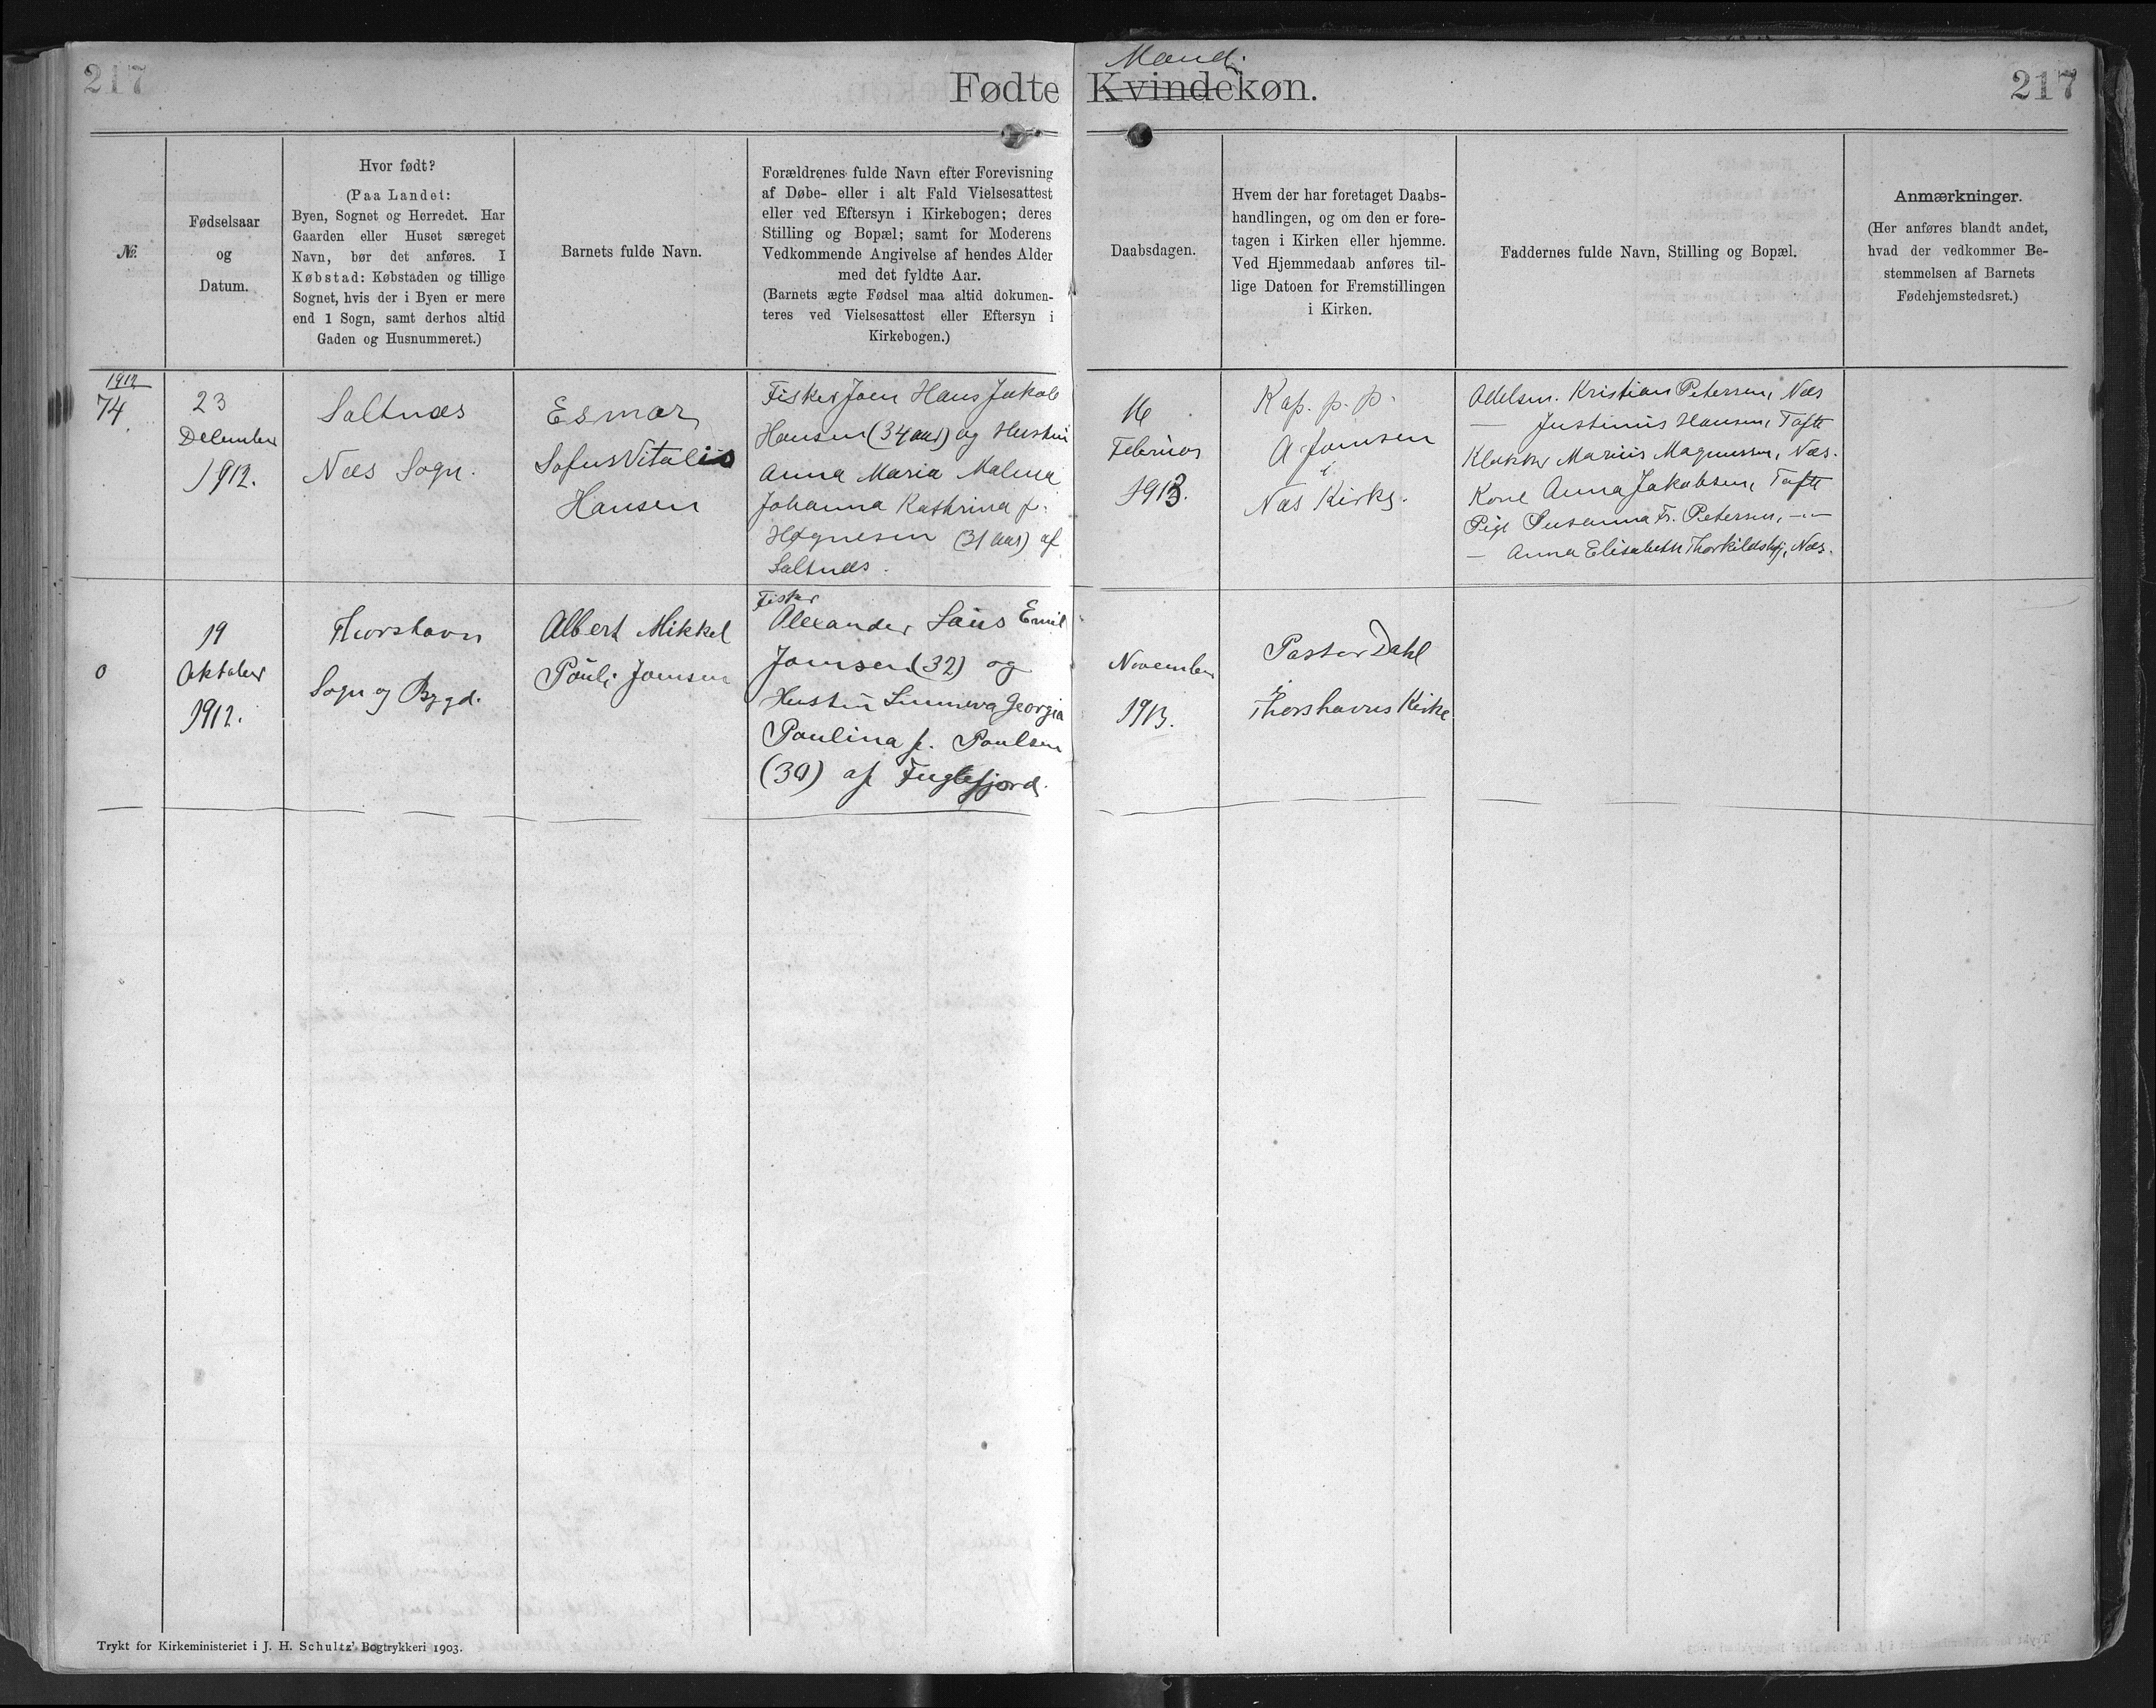 217
Mand.
Fødte Kvindekøn.
217
№
Fødselsaar
og
Datum.
Hvor født?
(Paa Landet:
Byen, Sognet og Herredet. Har
Gaarden eller Huset særeget
Navn, bør det anføres. I
Købstad: Købstaden og tillige
Sognet, hvis der i Byen er mere
end 1 Sogn, samt derhos altid
Gaden og Husnummeret.)
Barnets fulde Navn.
Forældrenes fulde Navn efter Forevisning
af Døbe- eller i alt Fald Vielsesattest
eller ved Eftersyn i Kirkebogen; deres
Stilling og Bopæl; samt for Moderens
Vedkommende Angivelse af hendes Alder
med det fyldte Aar.
(Barnets ægte Fødsel maa altid dokumen-
teres ved Vielsesattest eller Eftersyn i
Kirkebogen.)
Daabsdagen.
Hvem der har foretaget Daabs-
handlingen, og om den er fore-
tagen i Kirken eller hjemme.
Ved Hjemmedaab anføres til-
lige Datoen for Fremstillingen
i Kirken.
Faddernes fulde Navn, Stilling og Bopæl.
Anmærkninger.
(Her anføres blandt andet,
hvad der vedkommer Be-
stemmelsen af Barnets
Fødehjemstedsret.)
1912
74
23
December
1912.
Saltnæs
Næs Sogn.
Esmar
Sofus Vitalis
Hansen
Fisker Joen Hans Jakob
Hansen (34 aar) og Hustru
Anna Maria Malena
Johanna Kathrina f.
Høgnesen (31 aar) af
Saltnæs.
16
Februar
1913.
Kap. p. p.
A Joensen
i
Næs Kirke.
Odelsm. Kristian Petersen, Næs
— Justinus Hansen, Tofte
Klokker Marius Magnussen, Næs.
Kone Anna Jakobsen, Tofte
Pige Susanna Fr. Petersen, —"—
— Anna Elisabeth Thorkildshøj, Næs.
0
19
Oktober
1912.
Thorshavn
Sogn og Bygd.
Albert Mikkel
Pouli Joensen
Fisker
Alexander Emil
Joensen (32) og
Hustru Sunneva Georgia
Paulina f. Poulsen
(30) af Fuglefjord.
November
1913.
Pastor Dahl
i
Thorshavns Kirke
Trykt for Kirkeministeriet i J. H. Schultz' Bogtrykkeri 1903.